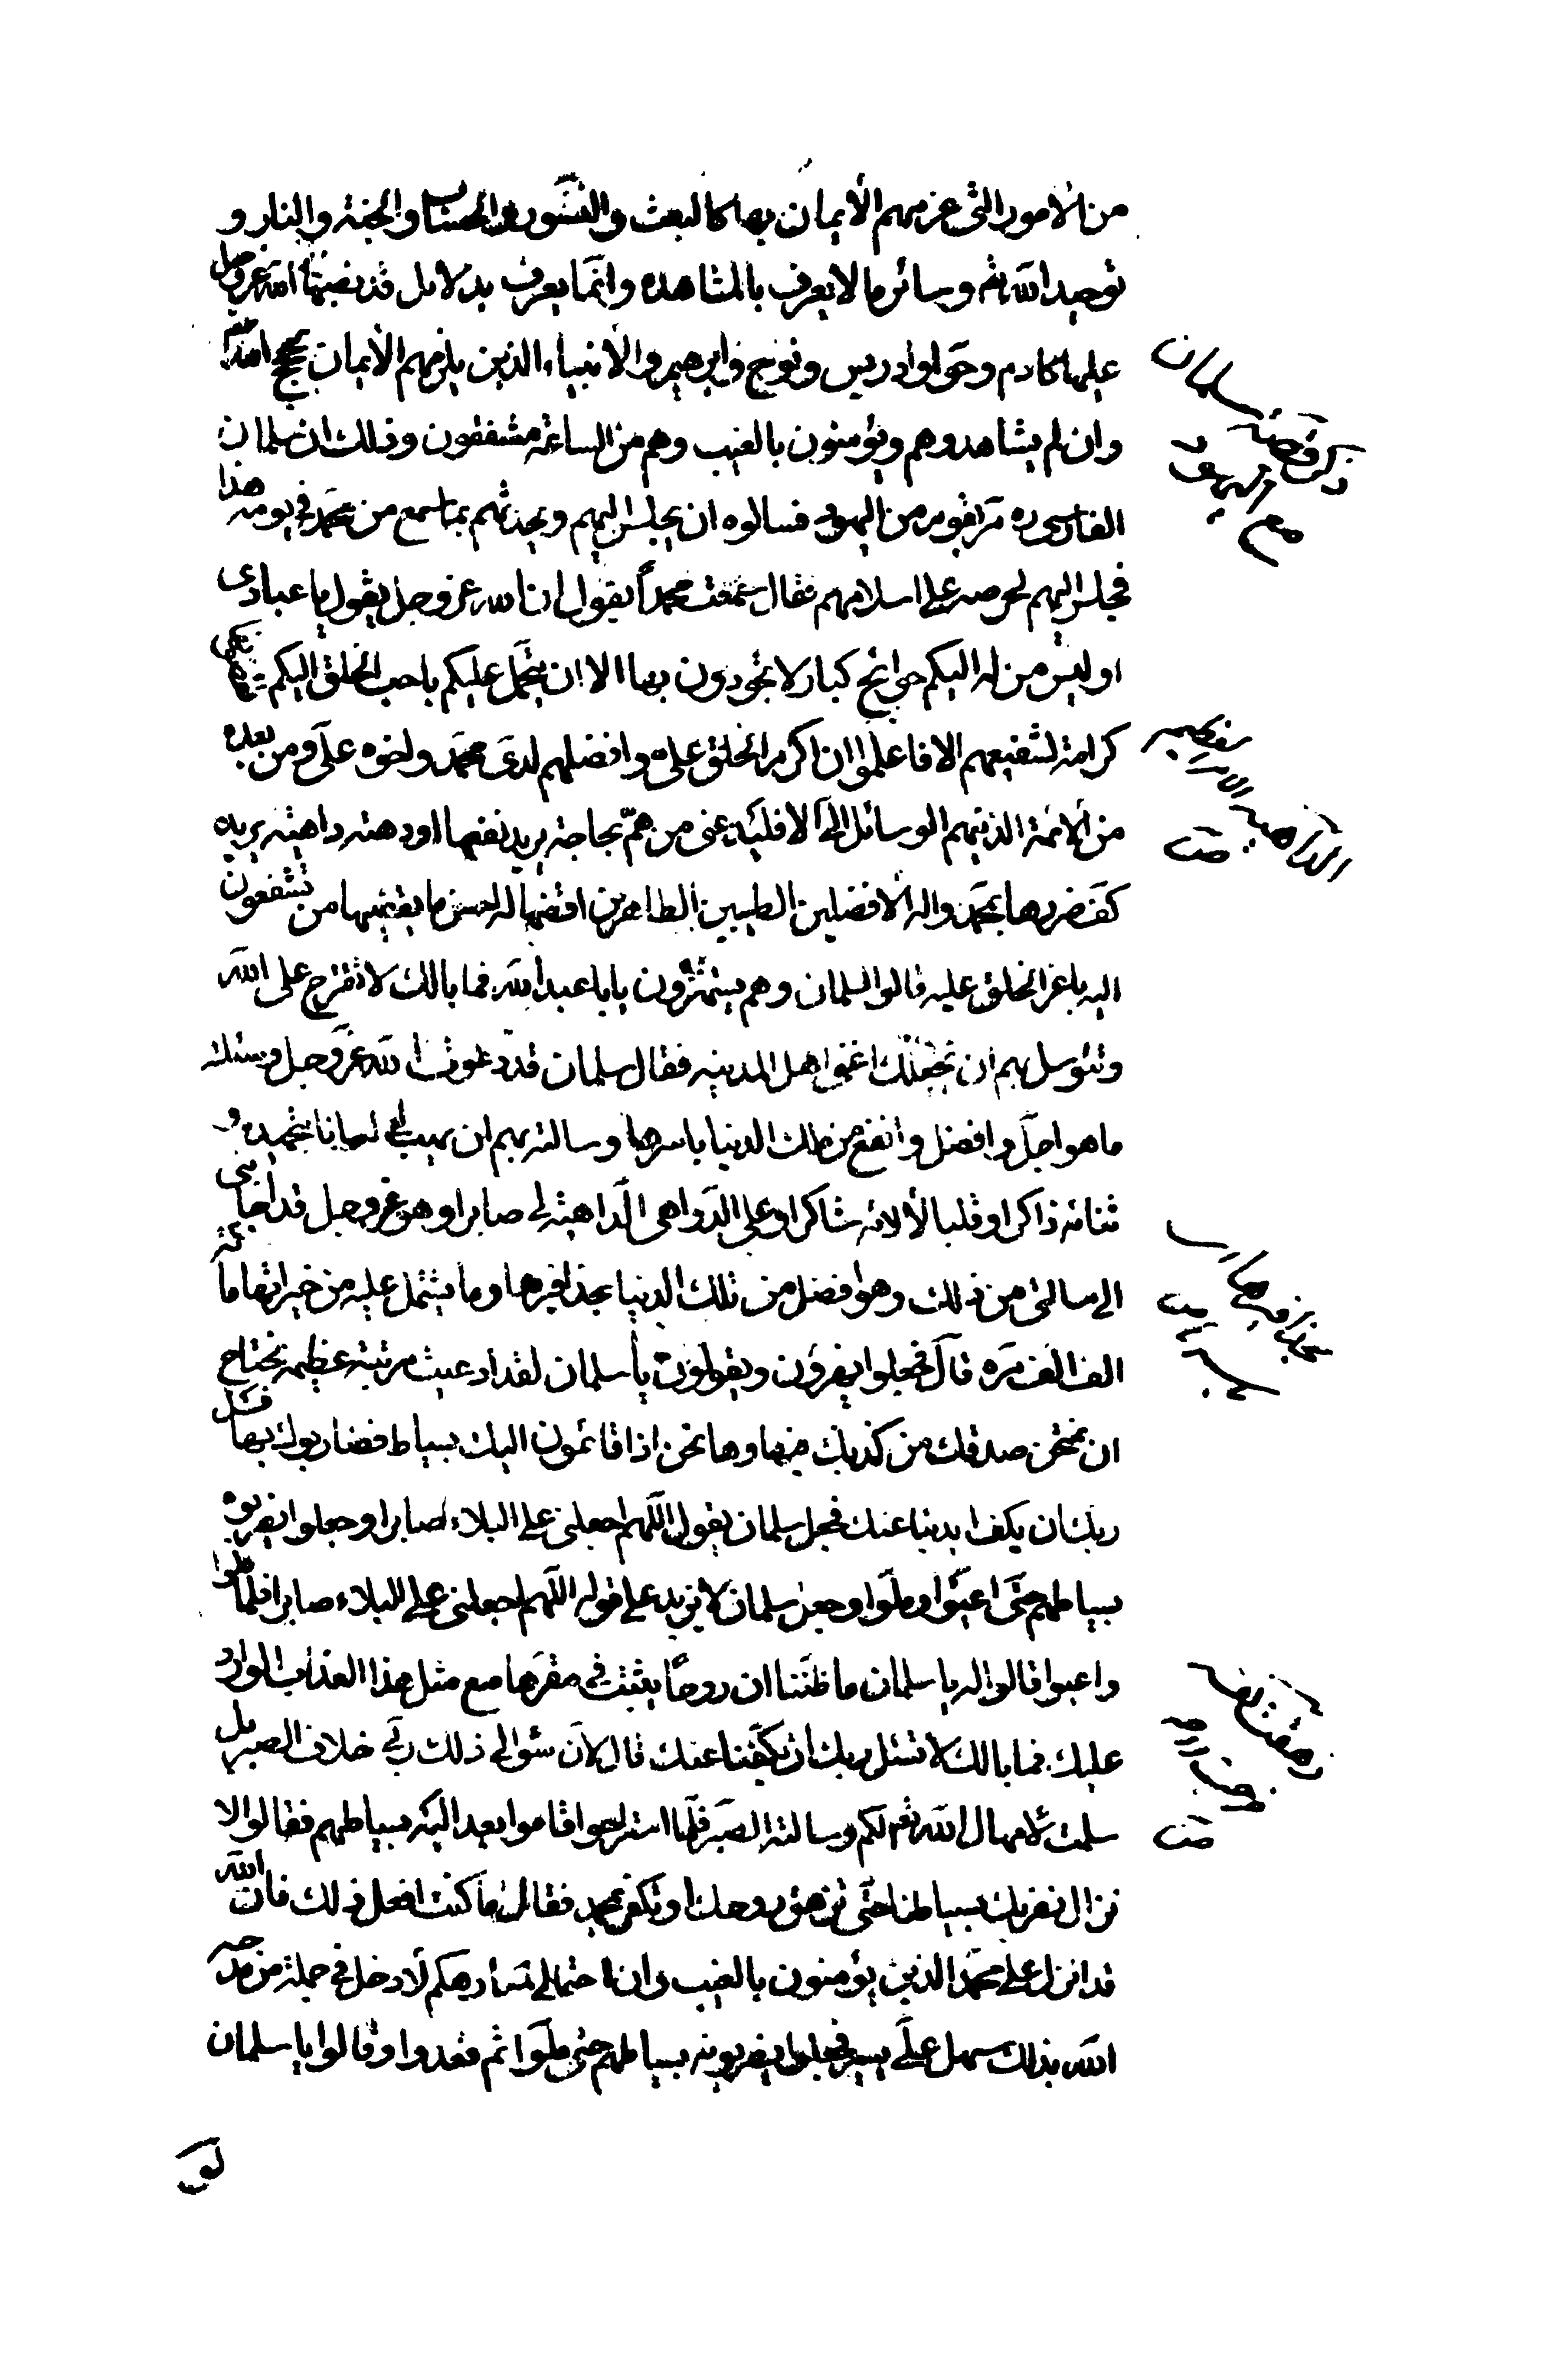 من الأمور التى عزمهم الأيمان بها كالبعث والنشور والحساب والجنة والنار و
توحيد الله تم وسائر ما لا يعرف بالمشاهده وانما يعرف بدلايل قد نصبها الله عز وجل
عليها كادم وحوا وادريس ونوح وابرهيم والأنبياء الذين يلزمهم الأيمان بحجج الله تم
وان لم يشاهدوهم ويؤمنون بالغيب وهم من الساعة مشفقون وذلك ان سلمان
الفارسى ره مر بقوم من اليهود فسالوه ان يجلس اليهم ويحدثهم بما سمع من محمد فى يومه هذا
فجلس اليهم لحرصه على اسلامهم فقال سمعت محمداً يقول ان الله عز وجل يقول يا عبادى
او ليس من له اليكم حوائج كبار لا تجودون بها الا ان يتحمل عليكم باحب الخلق اليكم تقضونها
كرامة لشفيعهم الا فاعلموا ان اكرم الخلق على وافضلهم لدى محمد واخوه على ومن بعده
من الأئمة الذينهم الوسائل الى الا فليدعنى من همّ بحاجة يريد نفعها او دهته داهية يريد
كف ضررها بمحمد واله الأفضلين الطيبين الطاهرين اقضها له احسن ما يقضيها من تشفعون
اليه باعز الخلق عليه قالوا لسلمان وهم يستهزؤن يابا عبد الله فما بالك لا تقترح على الله
وتتوسل بهم ان يجعلك اغنى اهل المدينه فقال سلمان قد دعوت الله عز وجل وسئلته
ما هو اجل وافضل وانفع من ملك الدنيا باسرها وسالته بهم ان يهب لى لسانا لتحميده و
ثنائه ذاكرا وقلبا لألائه شاكرا وعلى الدواهى الداهية لى صابرا وهو عز وجل قد اجابنى
الى ما سالته من ذلك وهو افضل من تلك الدنيا بحذافيرها وما يشتمل عليه من خيراتها مائة
الف الف مره قال فجعلوا يهزؤن ويقولون يا سلمان لقد ادعيت مرتبة عظيمه نحتاج
ان نمتحن صدقك من كذبك فيها وها نحن اذا قائمون اليك بسياط فضاربوك بها فسل
ربك ان يكف ايدينا عنك فجعل سلمان يقول اللهم اجعلنى على البلاء صابرا وجعلوا يضربوه
بسياطهم حتى اعيوا وملوا وجعل سلمان لا يزيد على قوله اللهم اجعلنى على البلاء صابرا فلما ملوا
واعيوا قالوا له يا سلمان ما ظننا ان روحاً يثبت فى مقرها مع مثل هذا العذاب الوارد
عليك فما بالك لا تسئل ربك ان يكفنا عنك قال لأن سؤالى ذلك ربى خلاف الصبر بل
سلمت لأمهال الله تم لكم وسالته الصبر فلما استراحوا قاموا بعد اليه بسياطهم فقالوا لا
نزال نضربك بسياطنا حتى تزهق روحك او تكفر بمحمد فقال ما كنت افعل ذلك فان الله
قد انزل على محمد الذين يؤمنون بالغيب وان احتمالى لمكارهكم لأدخل فى جملة من مدحه
الله بذلك سهل على يسير فجعلوا يضربونه بسياطهم حتى ملوا ثم قعدوا وقالوا يا سلمان
ذكر قصة سلمان
مع اليهود